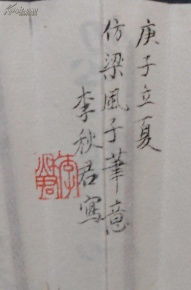 庚子立夏
仿梁風子筆意
李秋君寫